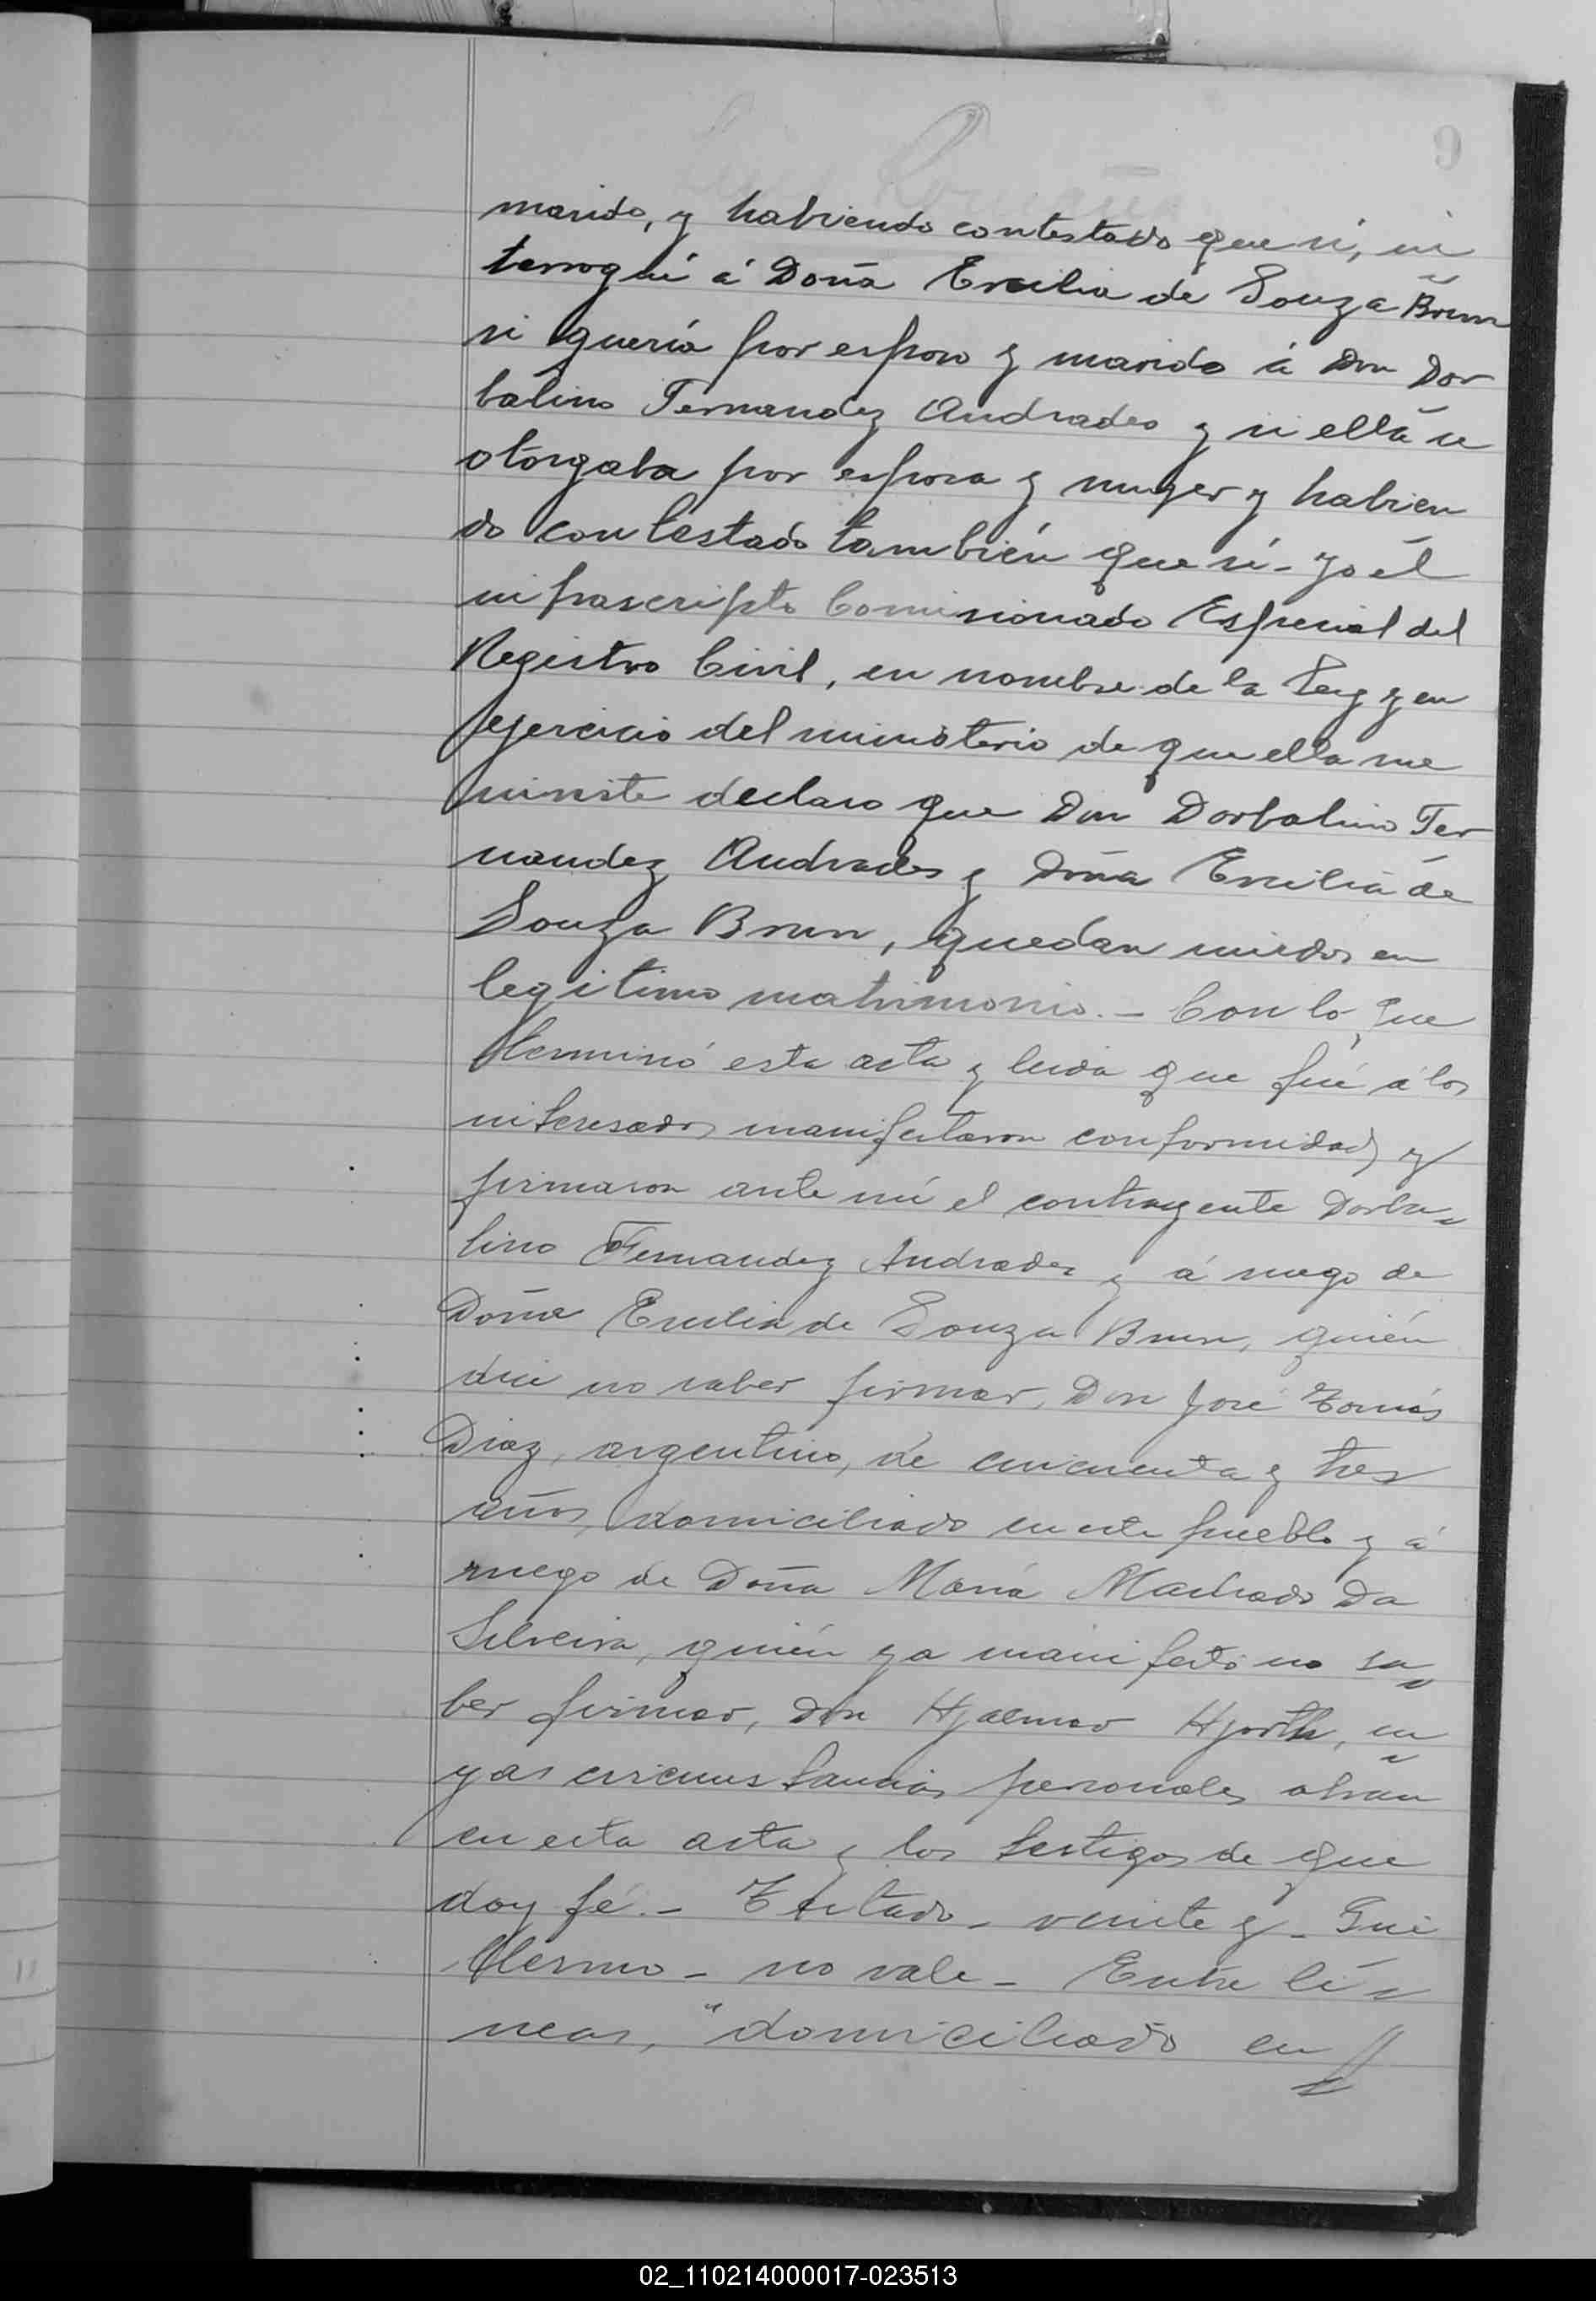 9
marido, y habiendo contestado que sí, in
terrogué á Doña Ercilia de Souza Brum
si quería por esposo y marido á Don Dor
balino Fernandez Andrades y si ella se
otorgaba por esposa y muger y habien
do contestado también que sí - yo el
infrascripto Comisionado Especial del
Registro Civil, en nombre de la Ley y en
ejercicio del ministerio de que ella me
inviste declaro que Don Dorbalino Fer
nandez Andrades y Doña Ercilia de
Souza Brum, quedan unidos en
legítimo matrimonio. - Con lo que
terminó esta acta y leida que fué á los
interesados manifestaron conformidad y
firmaron ante mí el contrayente Dorba=
lino Fernandez Andrades y á ruego de
Doña Ercilia de Souza Brum, quién
dice no saber firmar, Don José Tomás
Diaz, argentino, de cincuenta y tres
años, domiciliado en este pueblo y á
ruego de Doña María Machado Da
Silveira, quién ya manifestó no sa=
ber firmar, Don Hjalmar Hjorth, cu=
yas circunstancias personales obran
en esta acta y los testigos de que
doy fé. - Testado - veinte y - Gui
llermo - no vale - Entre lí=
neas, "domiciliado en
02_110214000017-023513